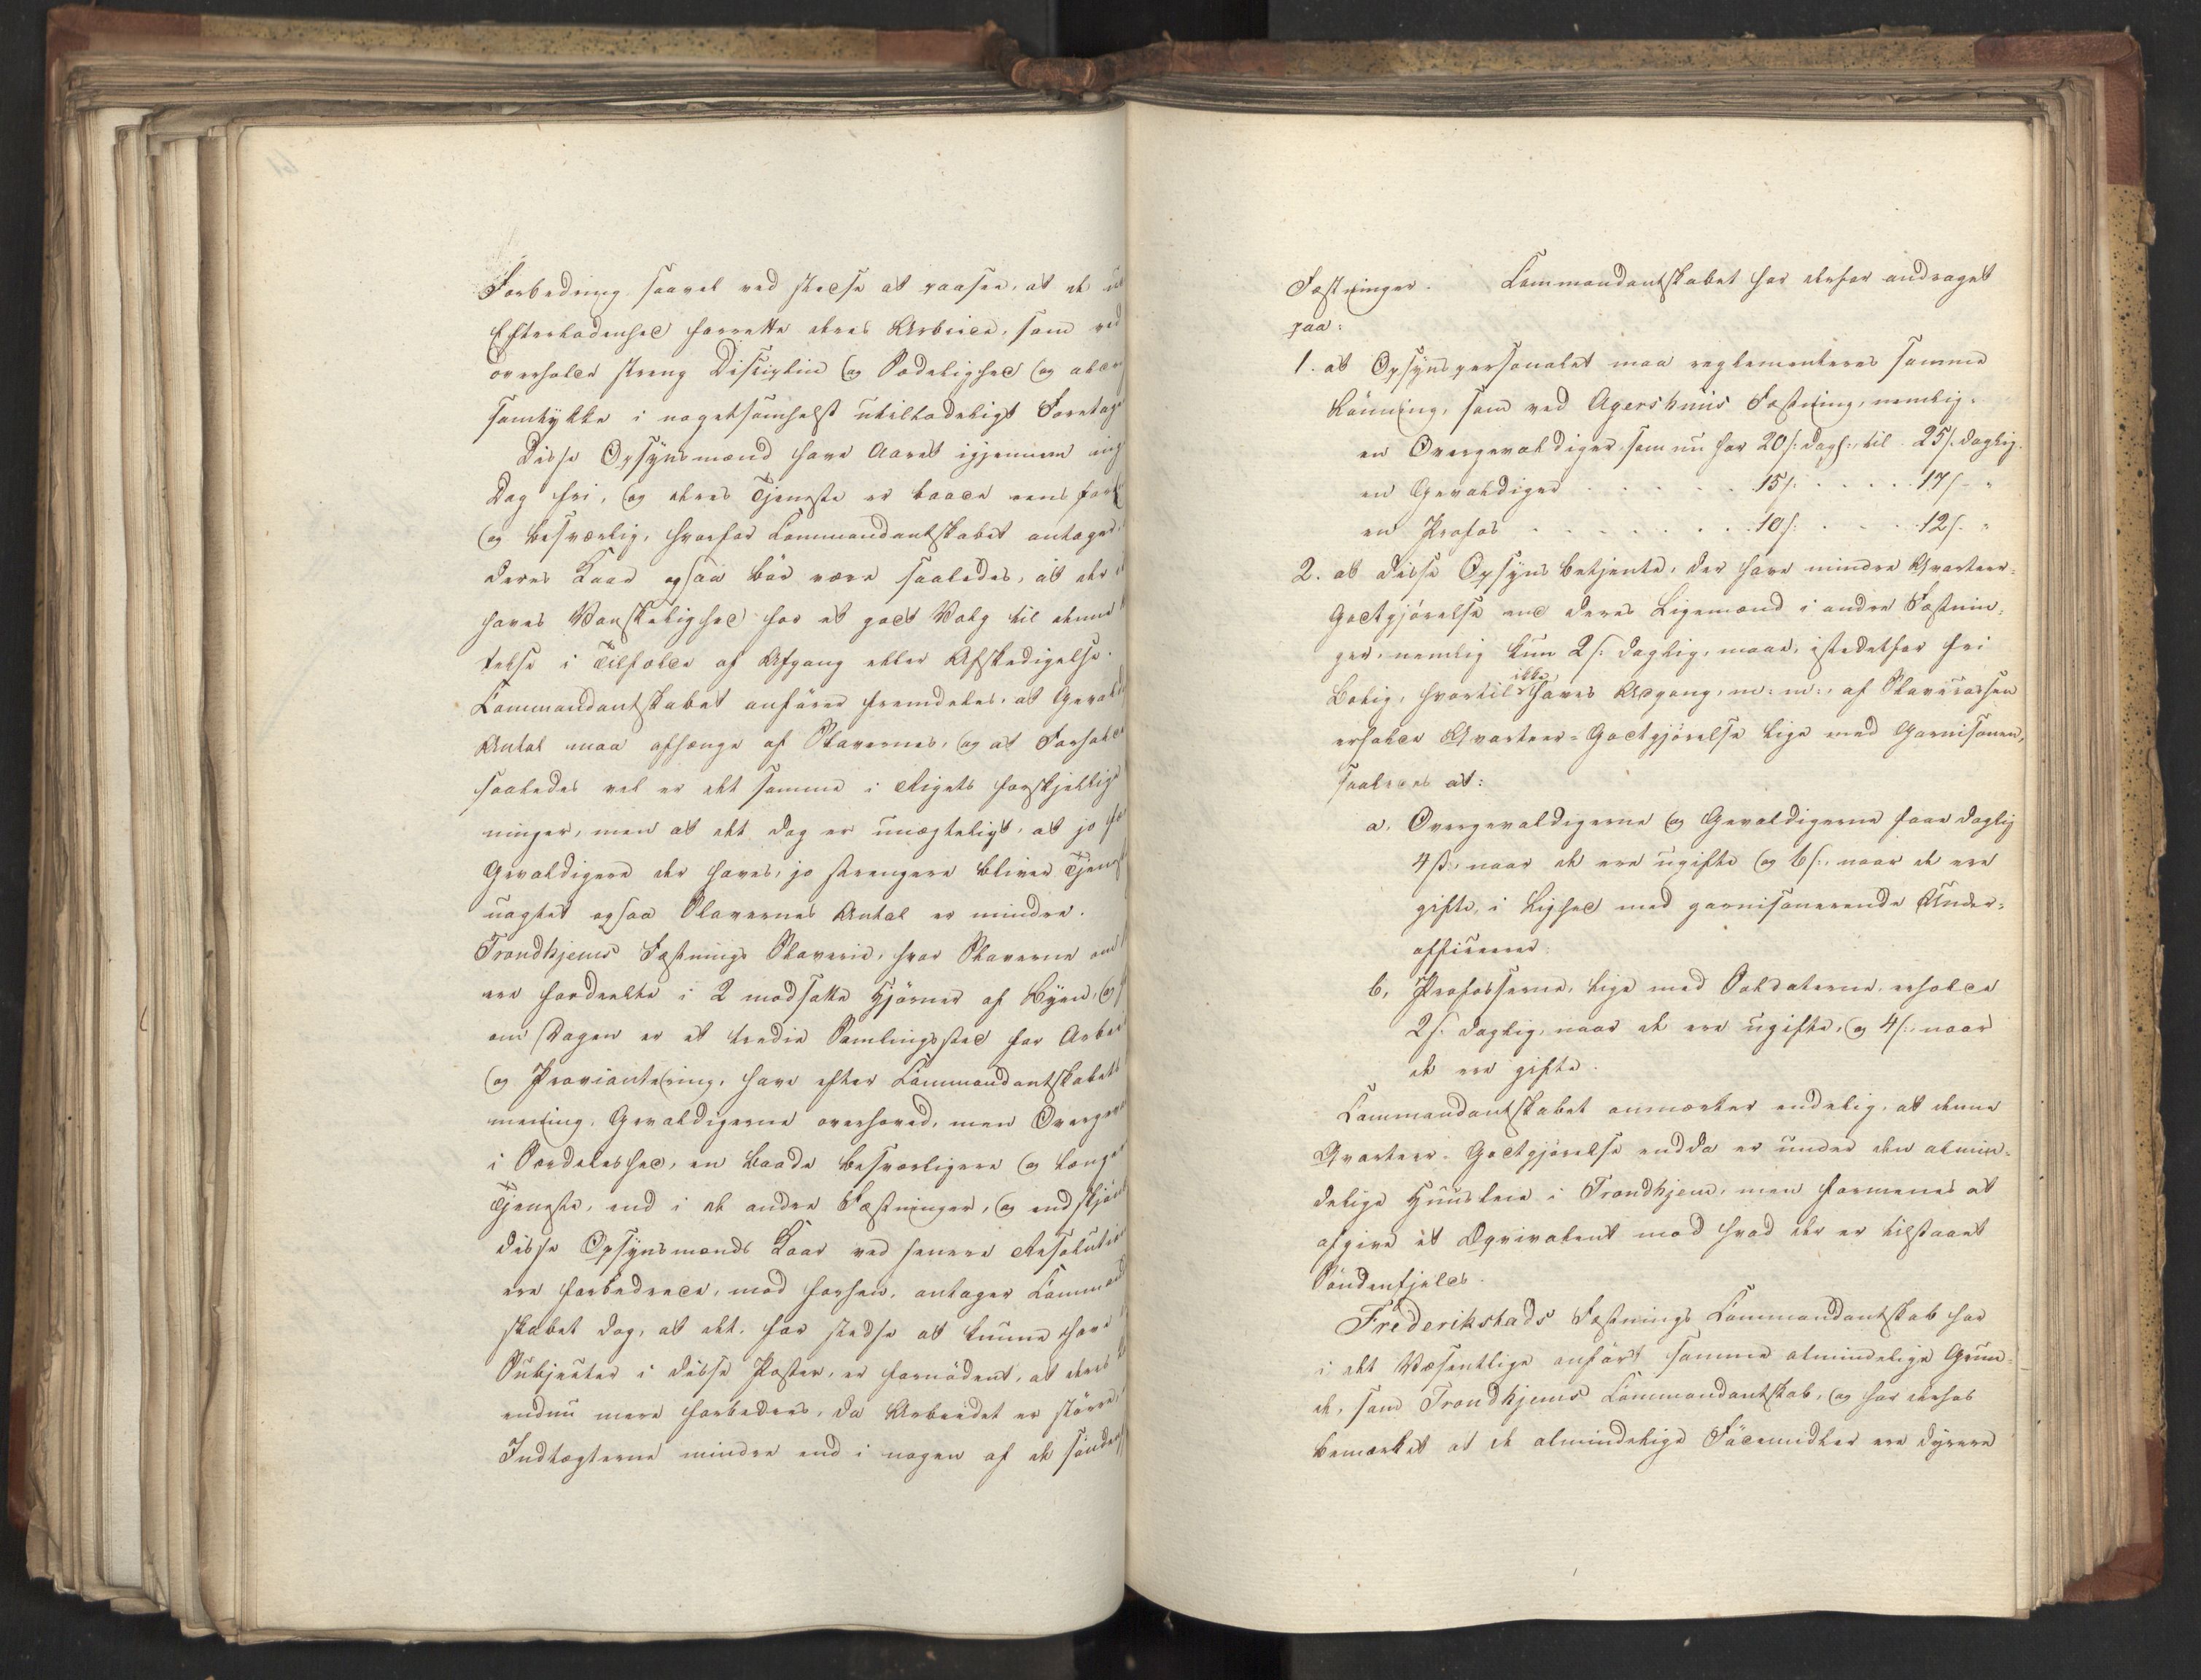 Forbedring saavel ved stedse at paasee, at de
Efterladenhed forrette deres Arbeide, som ved
overholde streng Disciplin og Sædelighed og aldrig
samtykke i nogetsomhelst utilladeligt Foretag
Disse Opsynsmænd have Aaret igjennem
Dag fri, og deres Tjeneste er baade
og besværlig, hvorfor Commandantskabet antager
deres Kaar ogsaa bör være saaledes, at der
haves Vanskelighed for et godt Valg til denne
telse i Tilfælde af Afgang eller Afskedigelse.
Commandantskabet anförer fremdeles, at Gevald
Antal maa afhænge af Slavernes, og at Forholde
saaledes vel er det samme i Rigets forskjellige
ninger, men at det dog er unægteligt, at jo
Gevaldigere der haves, jo strengere bliver Tjenest
uagtet ogsaa Slavernes Antal er mindre.
Trondhjems Fæstnings Slaverie, hvor Slaverne om
ere fordeelte i 2 modsatte Hjörner af Byen, og
om Dagen er et tredie Samlingssted for Arbei
og Proviantering, have efter Commandantskabets
mening, Gevaldigerne overhoved, men Overgeva
i Særdeleshed, en baade besværligere og længere
Tjeneste, end i de andre Fæstninger, og endskjönt
disse Opsynsmænds Kaar ved senere Resolution
ere forbedrede, mod forhen, antager Command
skabet dog, at det, for stedse at kunne have
Subjecter i disse Poster, er fornödent, at deres
endnu mere forbedres, da Arbeidet er större,
Indtægterne mindre end i nogen af de sönden
Fæstninger. Commandantskabet har derfor andraget
paa:
1. at Opsynspersonalet maa reglementeres samme
Lönning, som ved Agershuus Fæstning, nemlig:
en Overgevaldiger, som nu har 20 s: dagl:, til 25 s. daglig.
en Gevaldiger . . . . . 15 s: . . . . . 17 s - "
en Profos . . . . . . . 10 s: . . . . 12 s. "
2. at disse Opsynsbetjente, der have mindre Qvarteer-
Godtgjörelse end deres Ligemænd i andre Fæstnin-
ger, nemlig kun 2 s: daglig, maae, istedetfor fri
Bolig, hvortil ikke haves Adgang, m: m:, af Slavecassen
erholde Qvarteer-Godtgjörelse lige med Garnisonen,
saaledes at:
a. Overgevaldigerne og Gevaldigerne faae daglig
4 s:, naar de ere ugifte og 6 s:, naar de ere
gifte, i Lighed med garnisonerende Under-
officerer.
b. Profosserne, lige med Soldaterne, erholde
2 s: daglig, naar de ere ugifte, og 4 s:, naar
de ere gifte.
Commandantskabet anmærker endelig, at denne
Qvarteer-Godtgjörelse endda er under den almin-
delige Huusleie i Trondhjem, men formenes at
afgive et Æqvivalent mod hvad der er tilstaaet
Söndenfjelds.
Frederikstads Fæstnings Commandantskab har
i det Væsentlige anfört samme almindelige Grun-
de, som Trondhjems Commandantskab, og har derhos
bemærket at de almindelige Födemidler ere dyrere